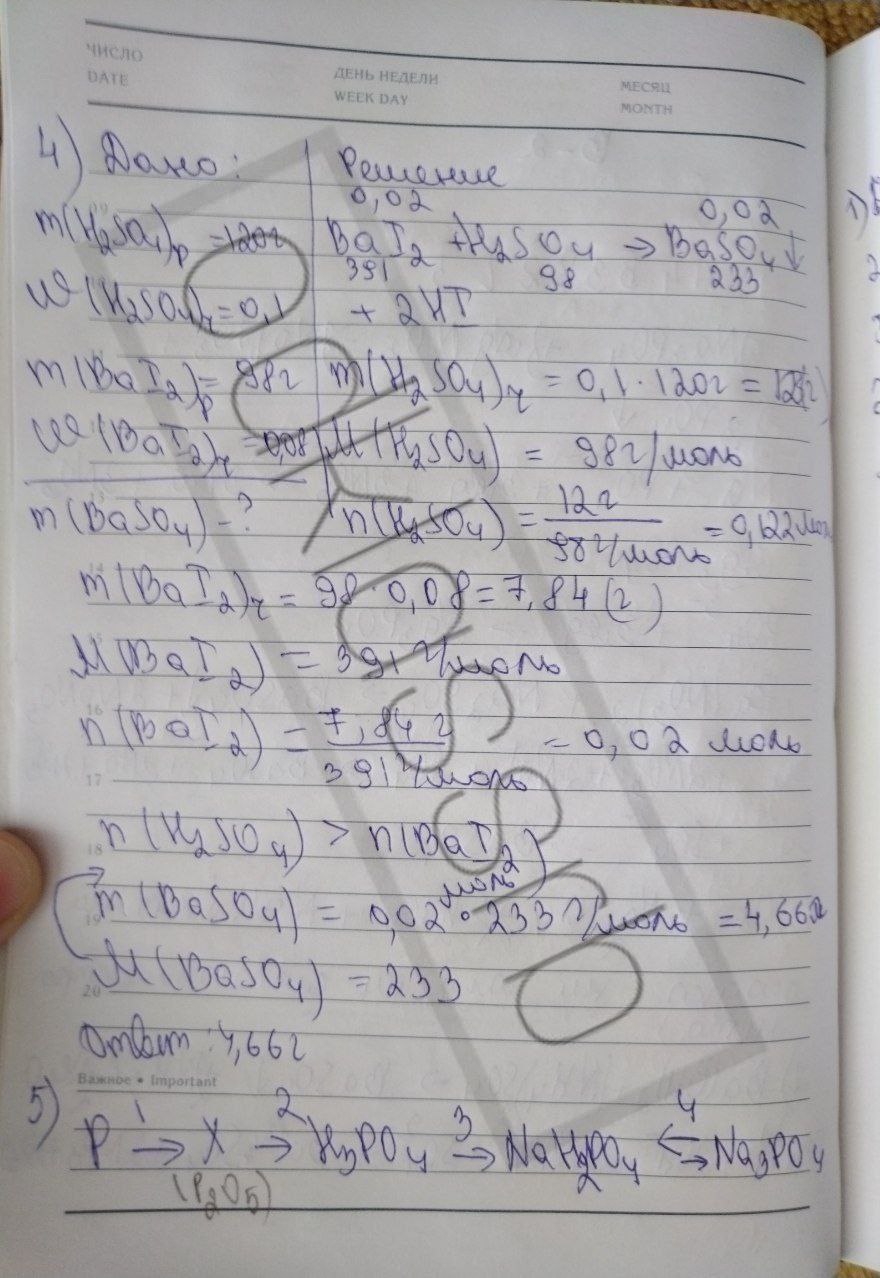 ЧИСЛО
DATE
ДЕНЬ НЕДЕЛИ
WEEK DAY
МЕСЯЦ
MONTH
4) Дано: Решение
m(H₂SO₄)р = 120г
ω(H₂SO₄)ч = 0,1
m(BaI₂)р = 98г
ω(BaI₂)ч = 0,08
m(BaSO₄) - ?
0,02 0,02
BaI₂ + H₂SO₄ → BaSO₄↓
391 98 233
+ 2HI
m(H₂SO₄)ч = 0,1 · 120г = 12(г)
M(H₂SO₄) = 98г/моль
n(H₂SO₄) = 12г / 98г/моль = 0,122моль
m(BaI₂)ч = 98 · 0,08 = 7,84(г)
M(BaI₂) = 391г/моль
16
n(BaI₂) = 7,84г / 391г/моль = 0,02 моль
17
n(H₂SO₄) > n(BaI₂)
18
m(BaSO₄) = 0,02 моль · 233г/моль = 4,66г
19
M(BaSO₄) = 233
20
Ответ: 4,66г
Важное • Important
5) P →¹ X →² H₃PO₄ →³ NaH₂PO₄ ⇄⁴ Na₃PO₄
(P₂O₅)
1)